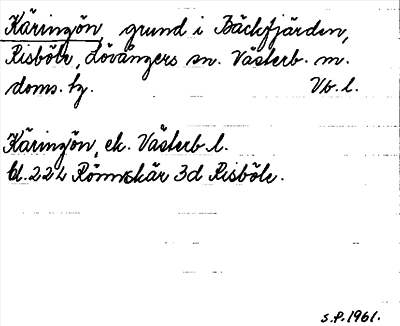 Käringön, grund i Bäckfjärden,
Risböle, Lövångers sn. Västerb. m.
doms. tg. Vb. l.
Käringön, ek. Västerb. l.
bl. 224 Rönnskär 3d Risböle.
S.P. 1961.